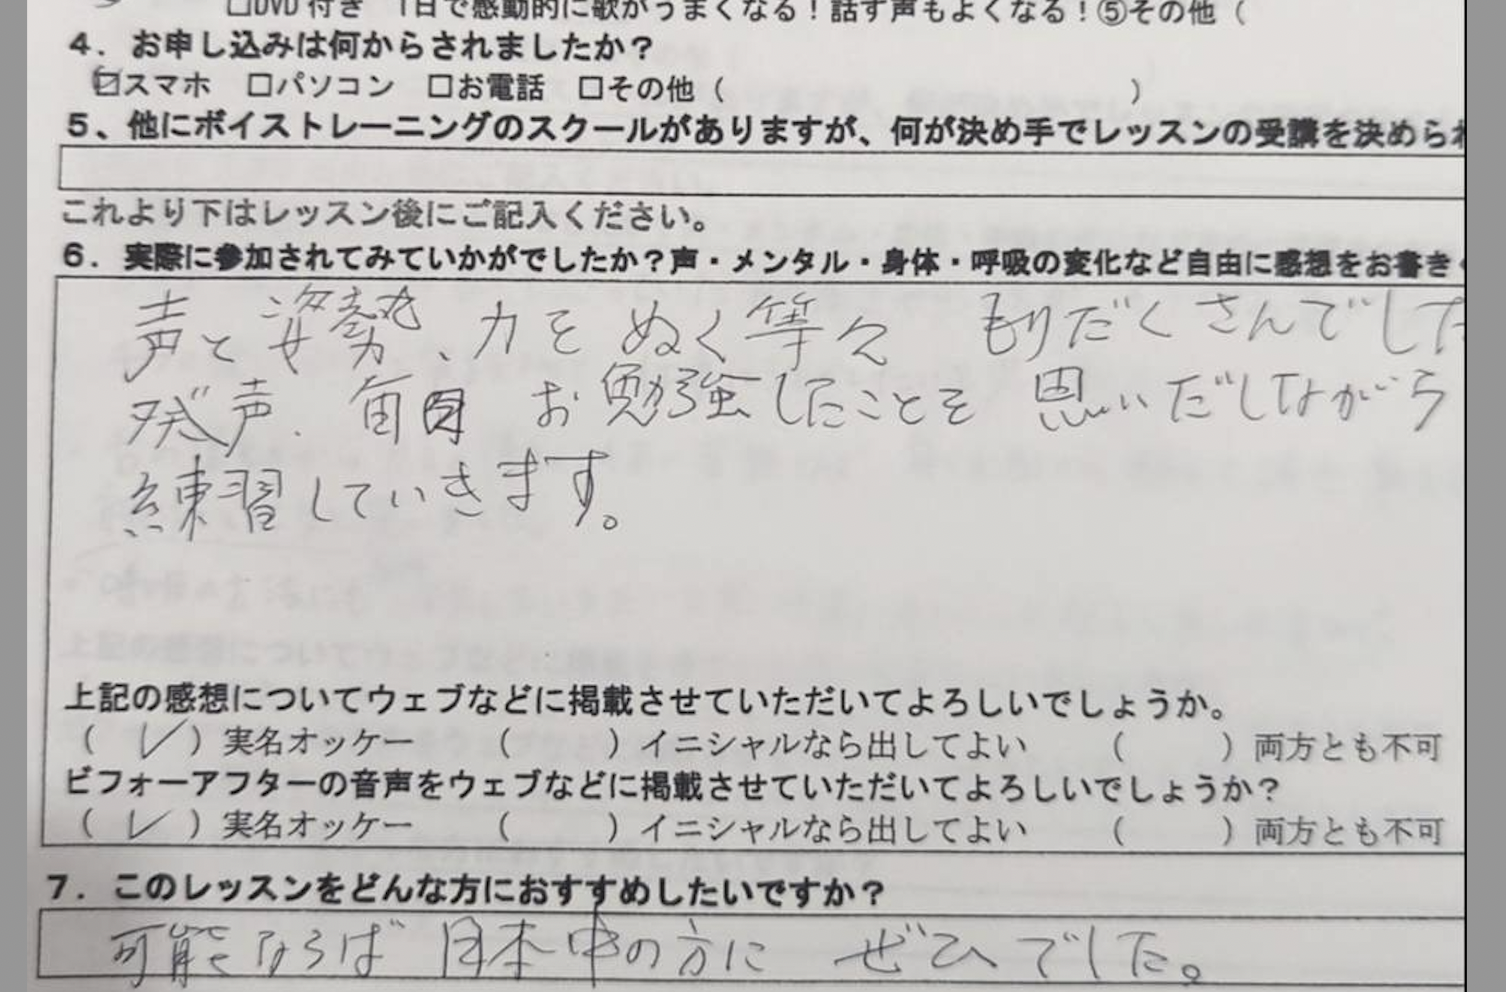 □DVD付き 1日で感動的に歌がうまくなる！話す声もよくなる！⑤その他（
４．お申し込みは何からされましたか？
☑スマホ □パソコン □お電話 □その他（ ）
５、他にボイストレーニングのスクールがありますが、何が決め手でレッスンの受講を決められ
これより下はレッスン後にご記入ください。
６．実際に参加されてみていかがでしたか？声・メンタル・身体・呼吸の変化など自由に感想をお書き
声と姿勢、力をぬく等々 もりだくさんでした
発声、毎日 お勉強したことを 思いだしながら
練習していきます。
上記の感想についてウェブなどに掲載させていただいてよろしいでしょうか。
（ ✓ ）実名オッケー （ ）イニシャルなら出してよい （ ）両方とも不可
ビフォーアフターの音声をウェブなどに掲載させていただいてよろしいでしょうか？
（ ✓ ）実名オッケー （ ）イニシャルなら出してよい （ ）両方とも不可
７．このレッスンをどんな方におすすめしたいですか？
可能ならば 日本中の方に ぜひでした。